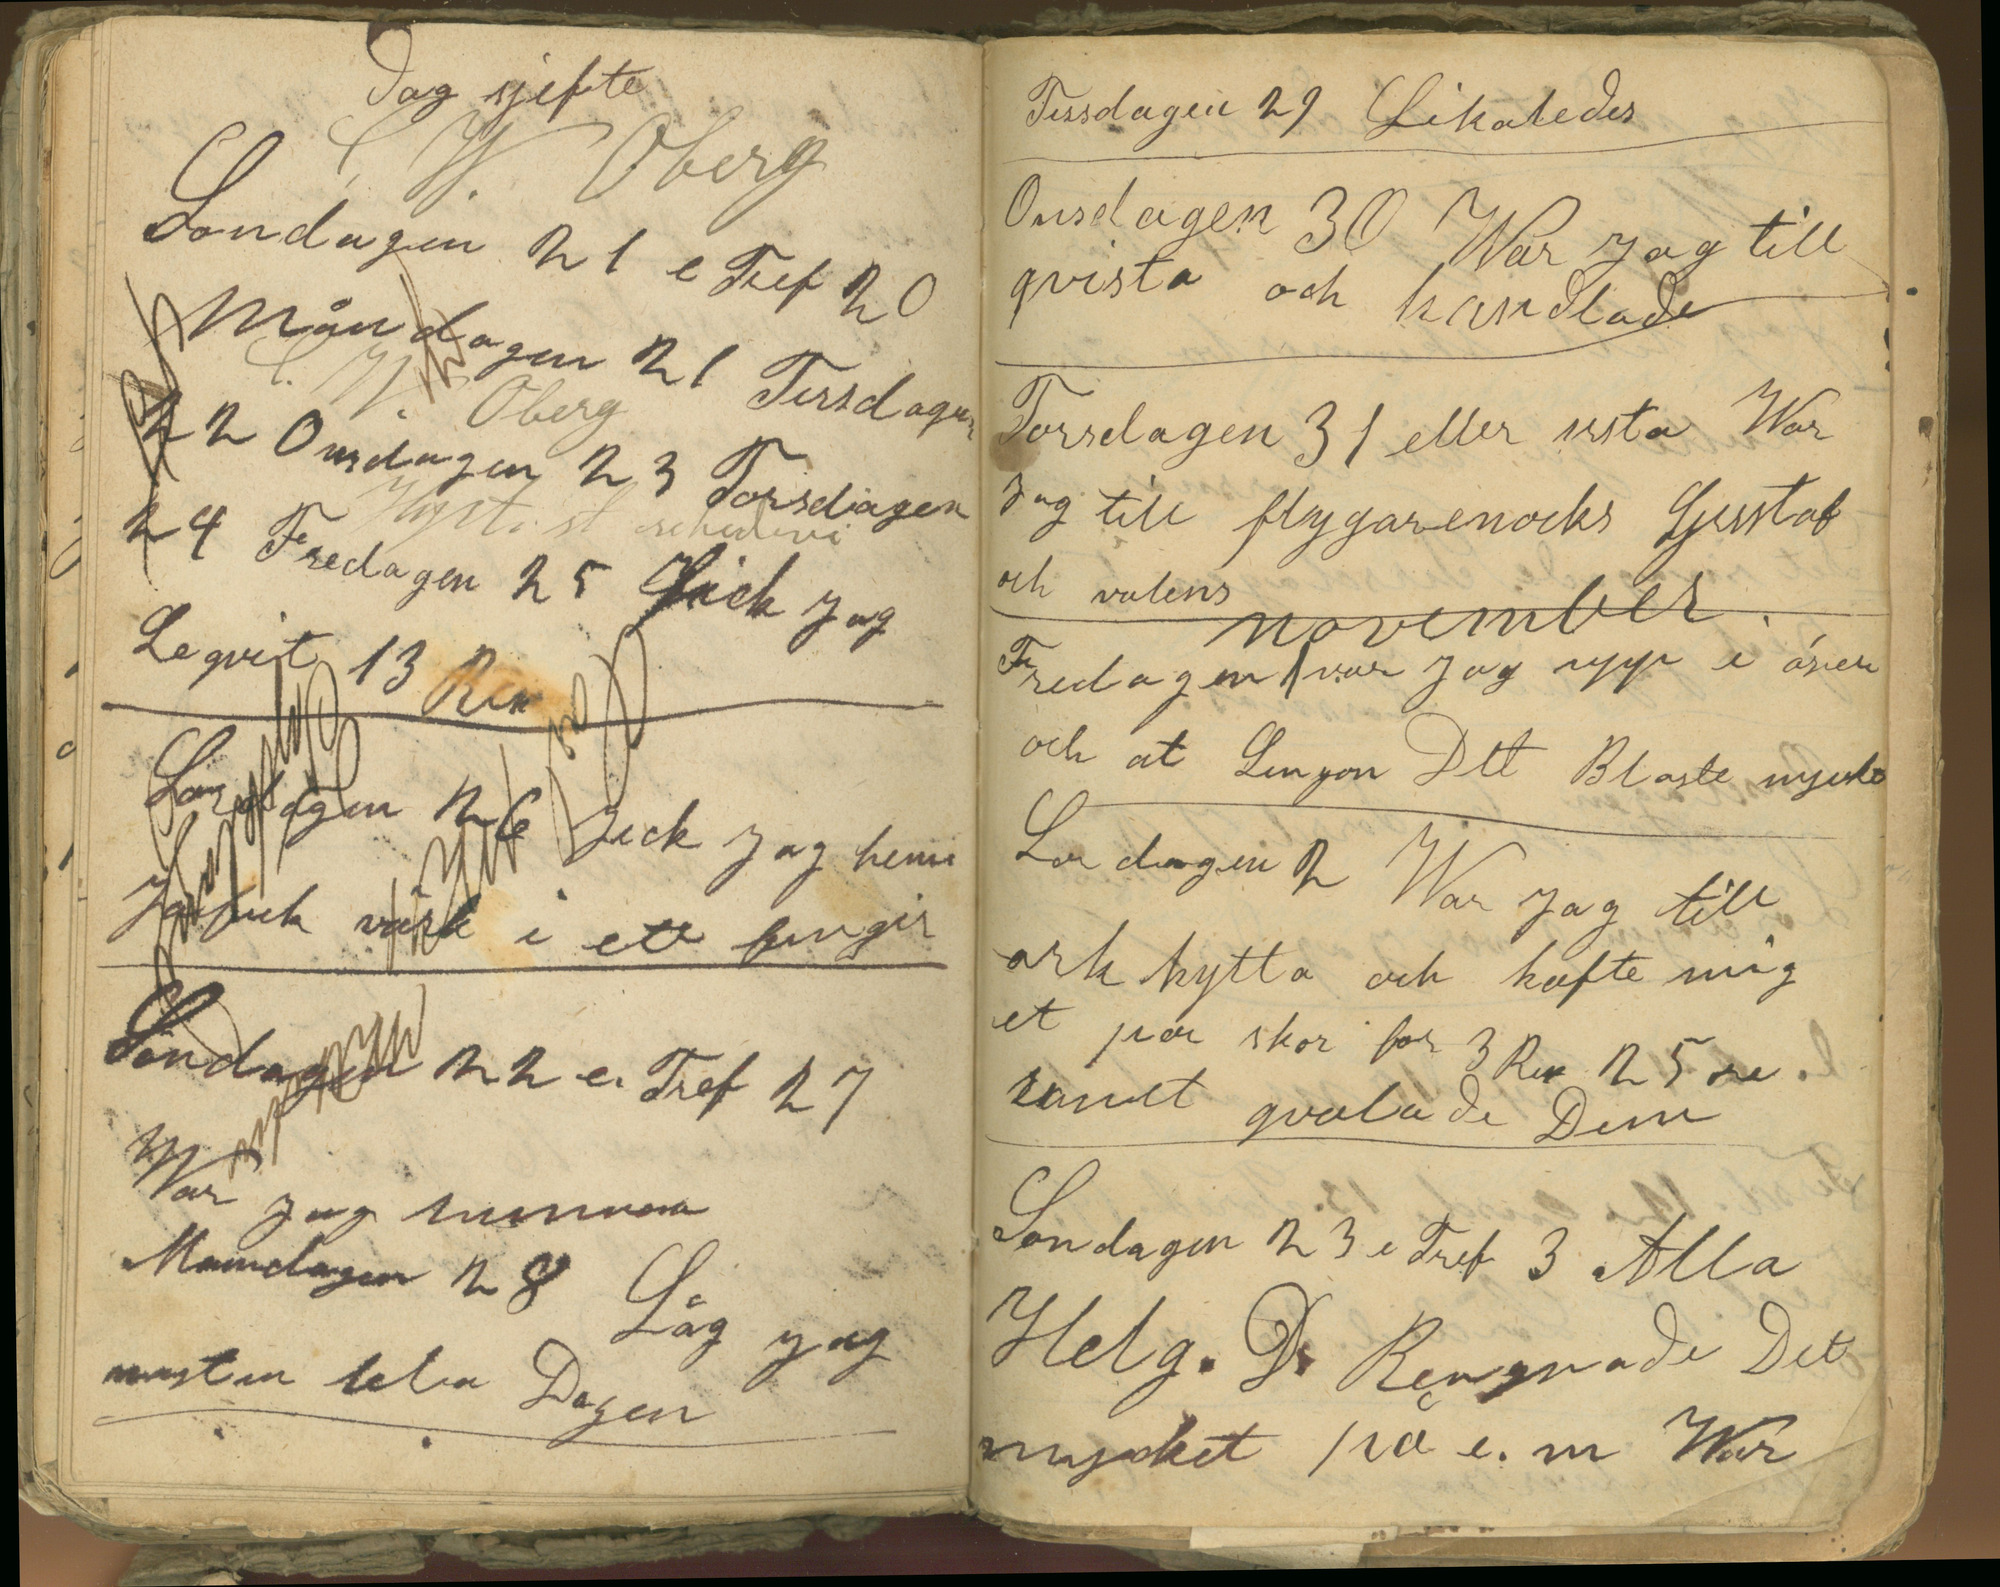 Dag sjefte
C. W. Oberg
Söndagen 21 e Tref 20
Måndagen 21 Tissdagen
C. W. Oberg
22 Onsdagen 23 Torsdagen
24 Fredagen 25 Gick jag
Leqvit 13 Rix
Lordagen 26 Jick jag hem
Jag fick värk i ett finger
Söndagen 22 e. Tref 27
War jag hemma
Mamdagen 28 Låg jag
nästen hela Dagen
Tissdagen 29 Likaledes
Onsdagen 30 War jag till
qvista och handlade
Torsdagen 31 eller ista War
jag till flygarenocks Gusstaf
och valens
november.
Fredagen 1 var jag upp i åsen
och at Lingon Dtt Blaste myske
Lordagen 2 War jag till
ork hytta och köfte mig
et par skor for 3 Rix 25 öre.
qvalade Dem
Söndagen 23 e Tref 3 Alla
Helg. D. Rengnade Det
mycket på e. m War